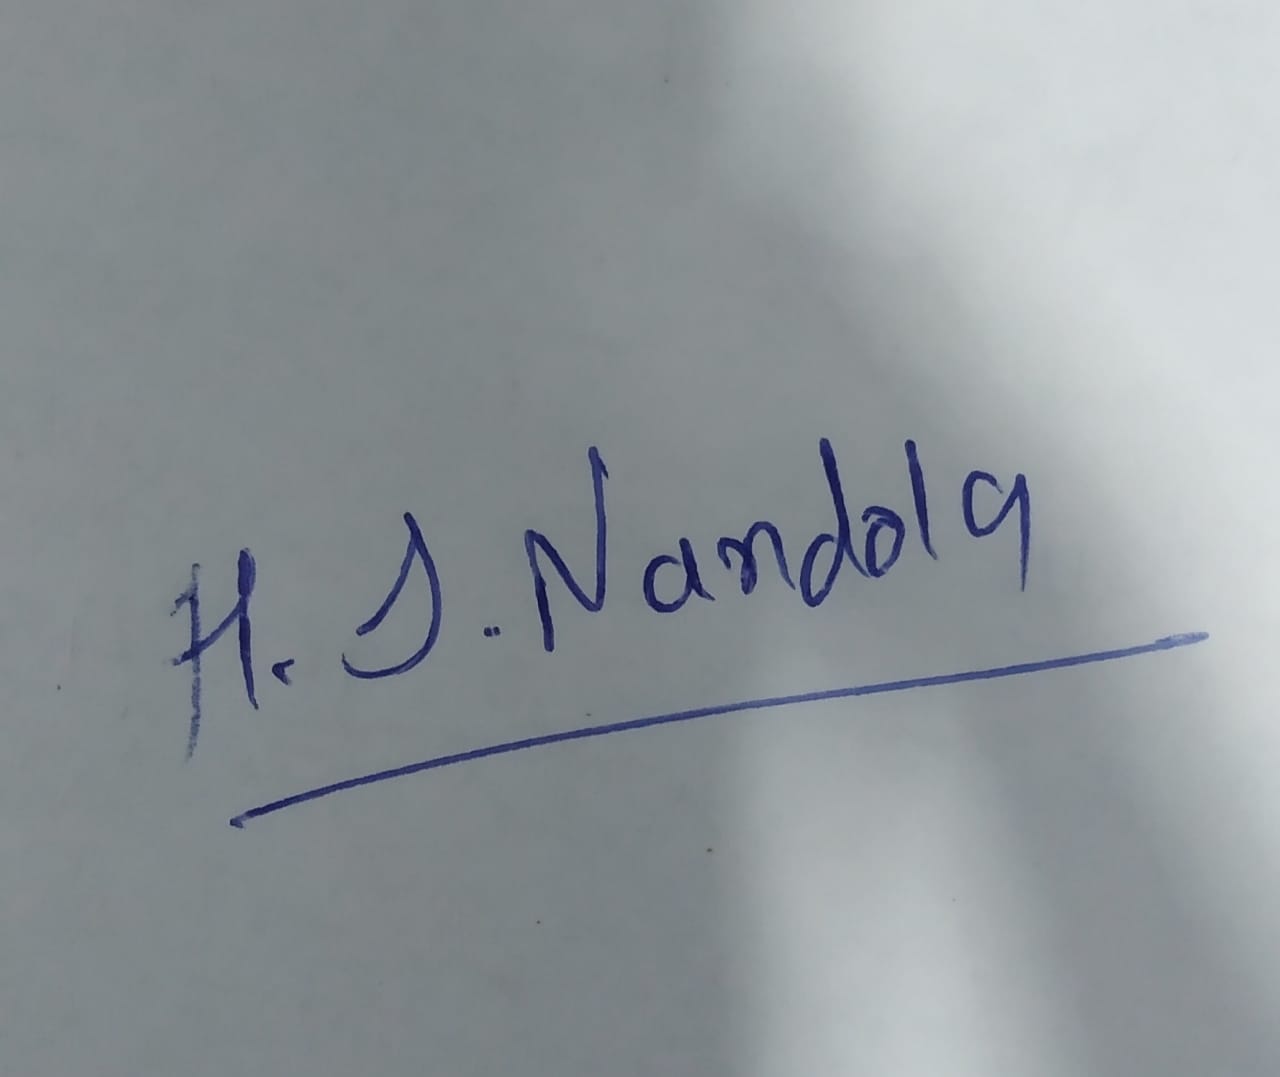 H. S. Nandola